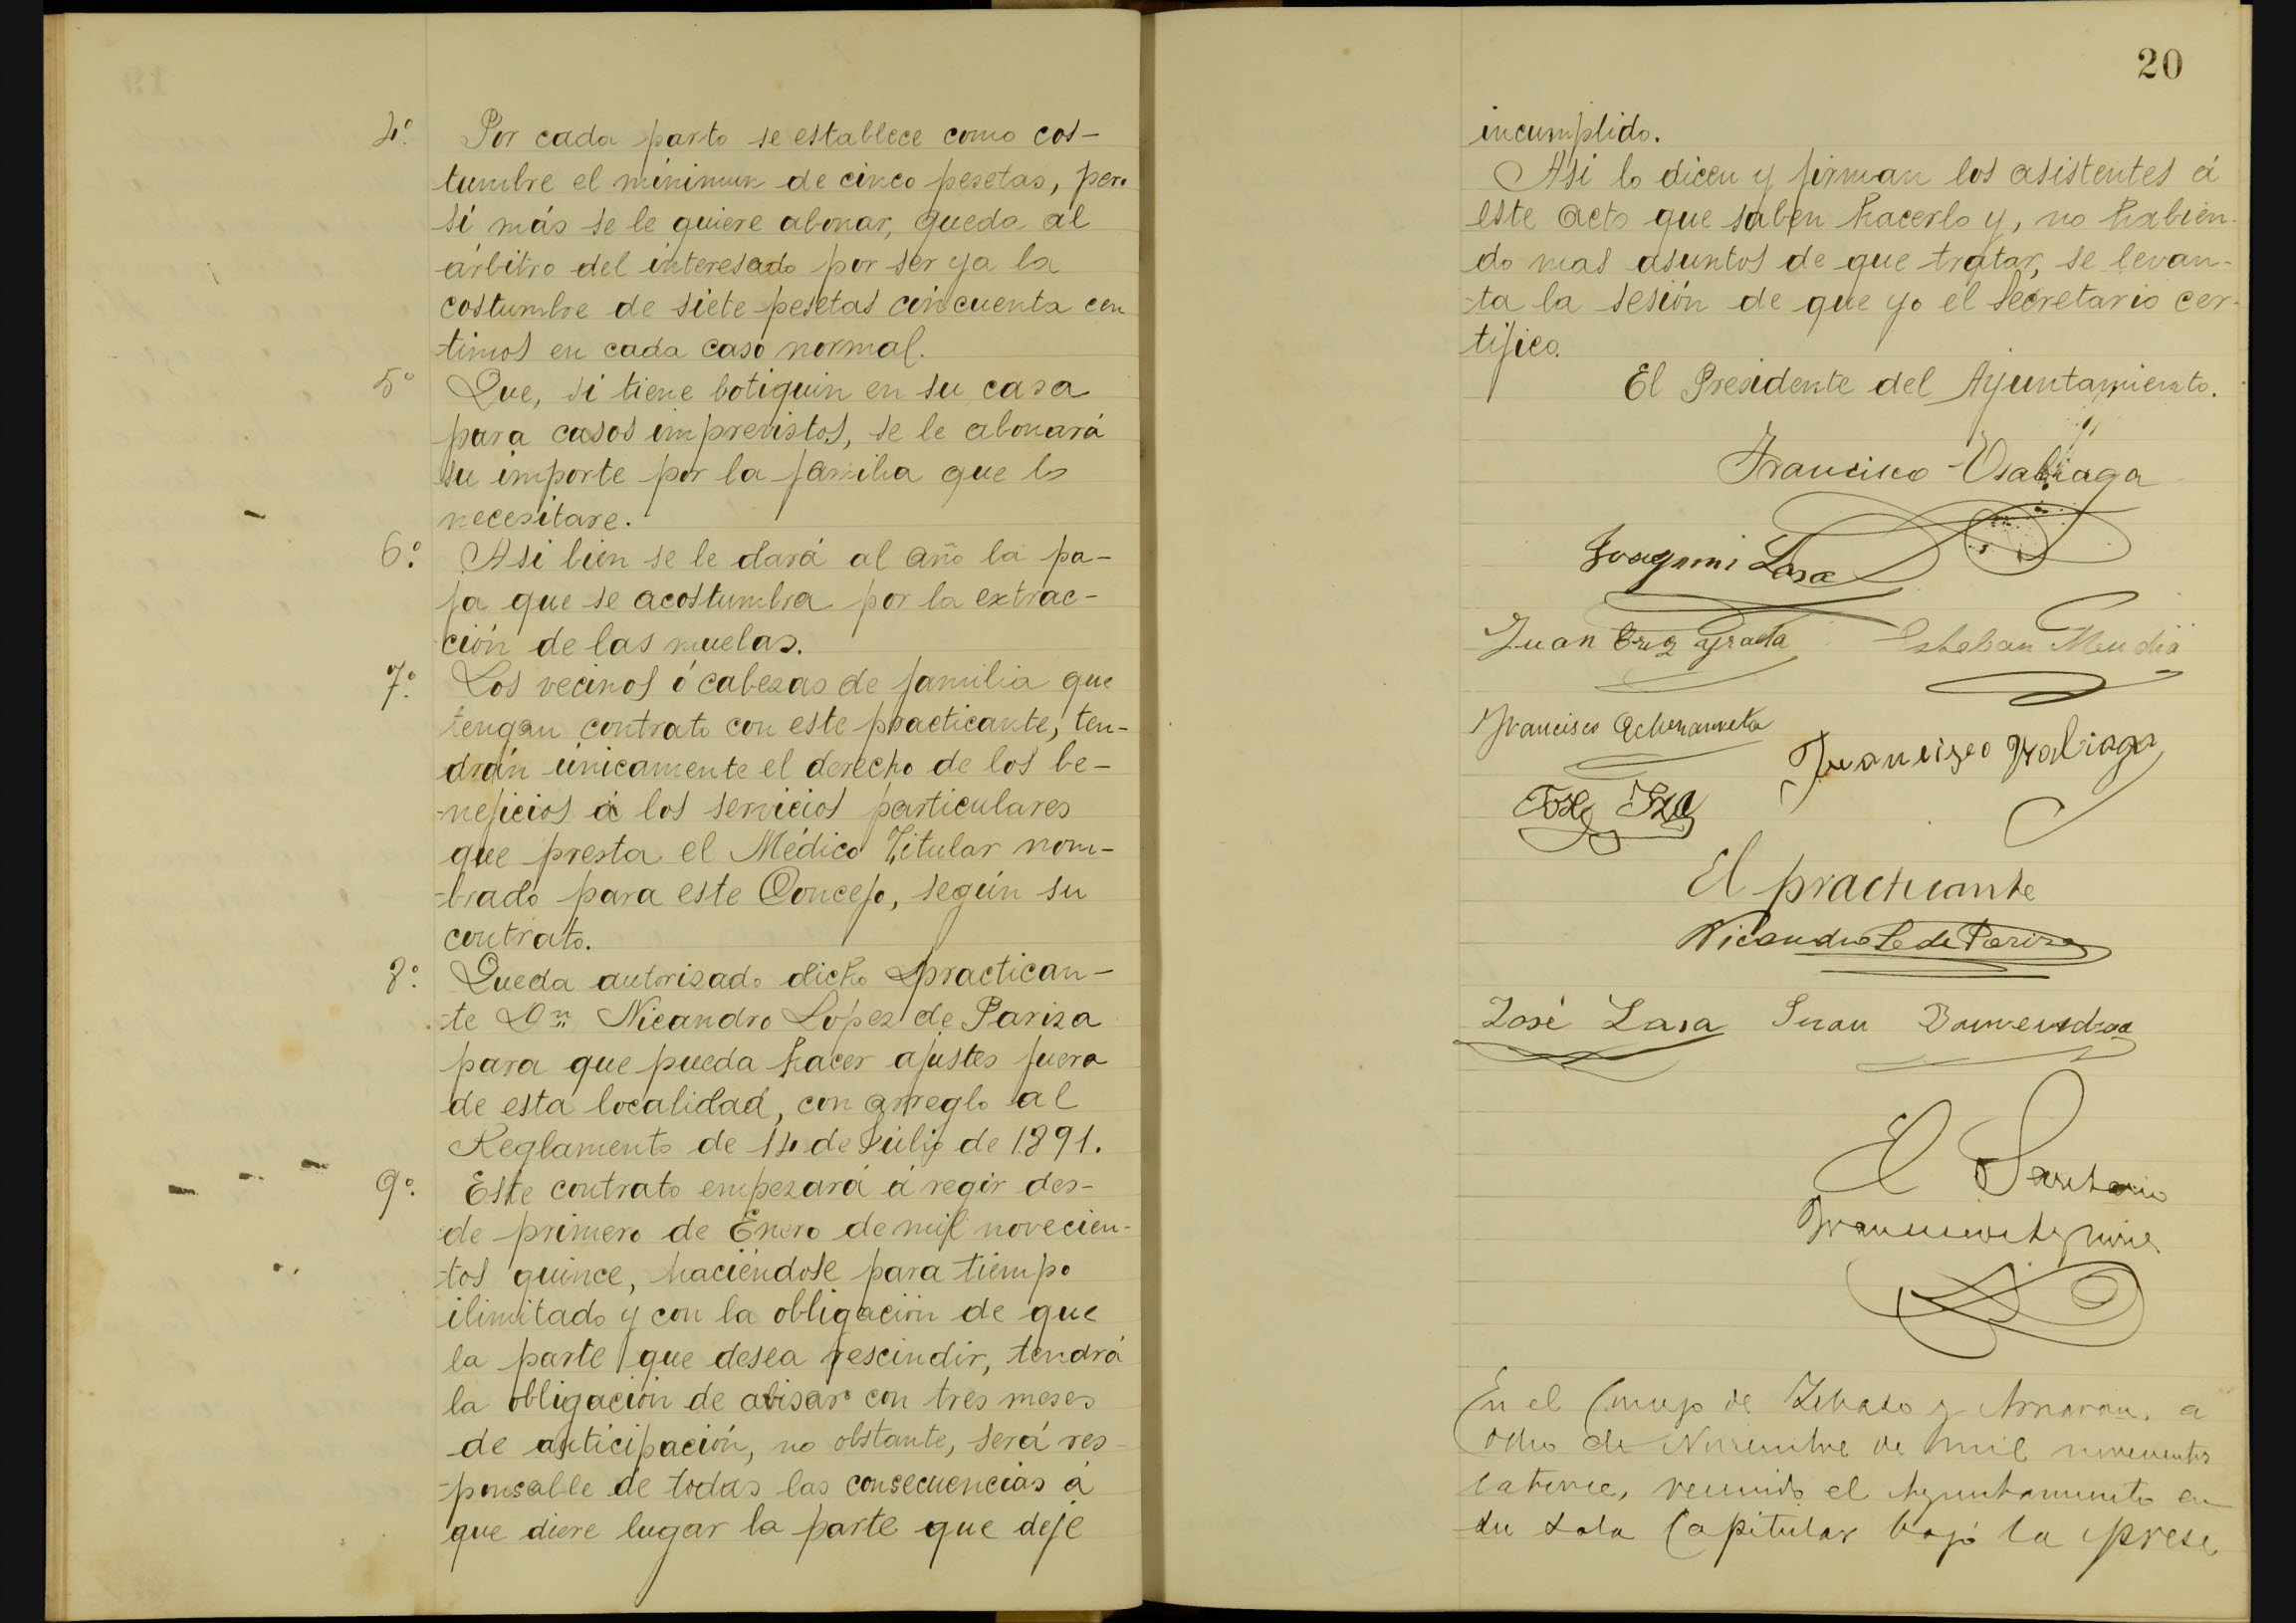 4.º Por cada parto se establece como cos-
tumbre el mínimun de cinco pesetas, pero
si más se le quiere abonar, queda al
árbitro del interesado por ser ya la
costumbre de siete pesetas cincuenta cen
timos en cada caso normal.
5º Que, si tiene botiquin en su casa
para casos imprevistos, se le abonará
su importe por la familia que lo
necesitare.
6.º Asi bien se le dará al año la pa-
ja que se acostumbra por la extrac-
ción de las muelas.
7.º Los vecinos ó cabezas de familia que
tengan contrato con este practicante, ten-
drán únicamente el derecho de los be-
-neficios á los servicios particulares
que presta el Médico Titular nom-
-brado para este Concejo, según su
contrato.
8.º Queda autorizado dicho practican-
-te Dn Nicandro López de Pariza
para que pueda hacer ajustes fuera
de esta localidad, con arreglo al
Reglamento de 14 de Júlio de 1891.
9.º Este contrato empezará á regir des-
de primero de Enero de mil novecien-
tos quince, haciéndose para tiempo
ilimitado y con la obligación de que
la parte que desea rescindir, tendrá
la obligación de abisar con tres meses
de anticipación, no obstante, será res-
-ponsable de todas las consecuencias á
que diere lugar la parte que deje
20
incumplido.
Asi lo dicen y firman los asistentes á
este acto que saben hacerlo y, no habien-
do mas asuntos de que tratar, se levan-
-ta la sesión de que yo el Secretario cer-
tifico.
El Presidente del Ayuntamiento.
Francisco Usabiaga
Joaquin Lasa
Juan Cruz Esteban Mendia
Francisco
Francisco
José
El practicante
Nicandro L. de Pariza
José Lasa Juan
El Secretario
En el Concejo de y Arnaran. a
ocho de Noviembre de mil novecientos
catorce, reunido el Ayuntamiento en
su sala Capitular bajo la presi